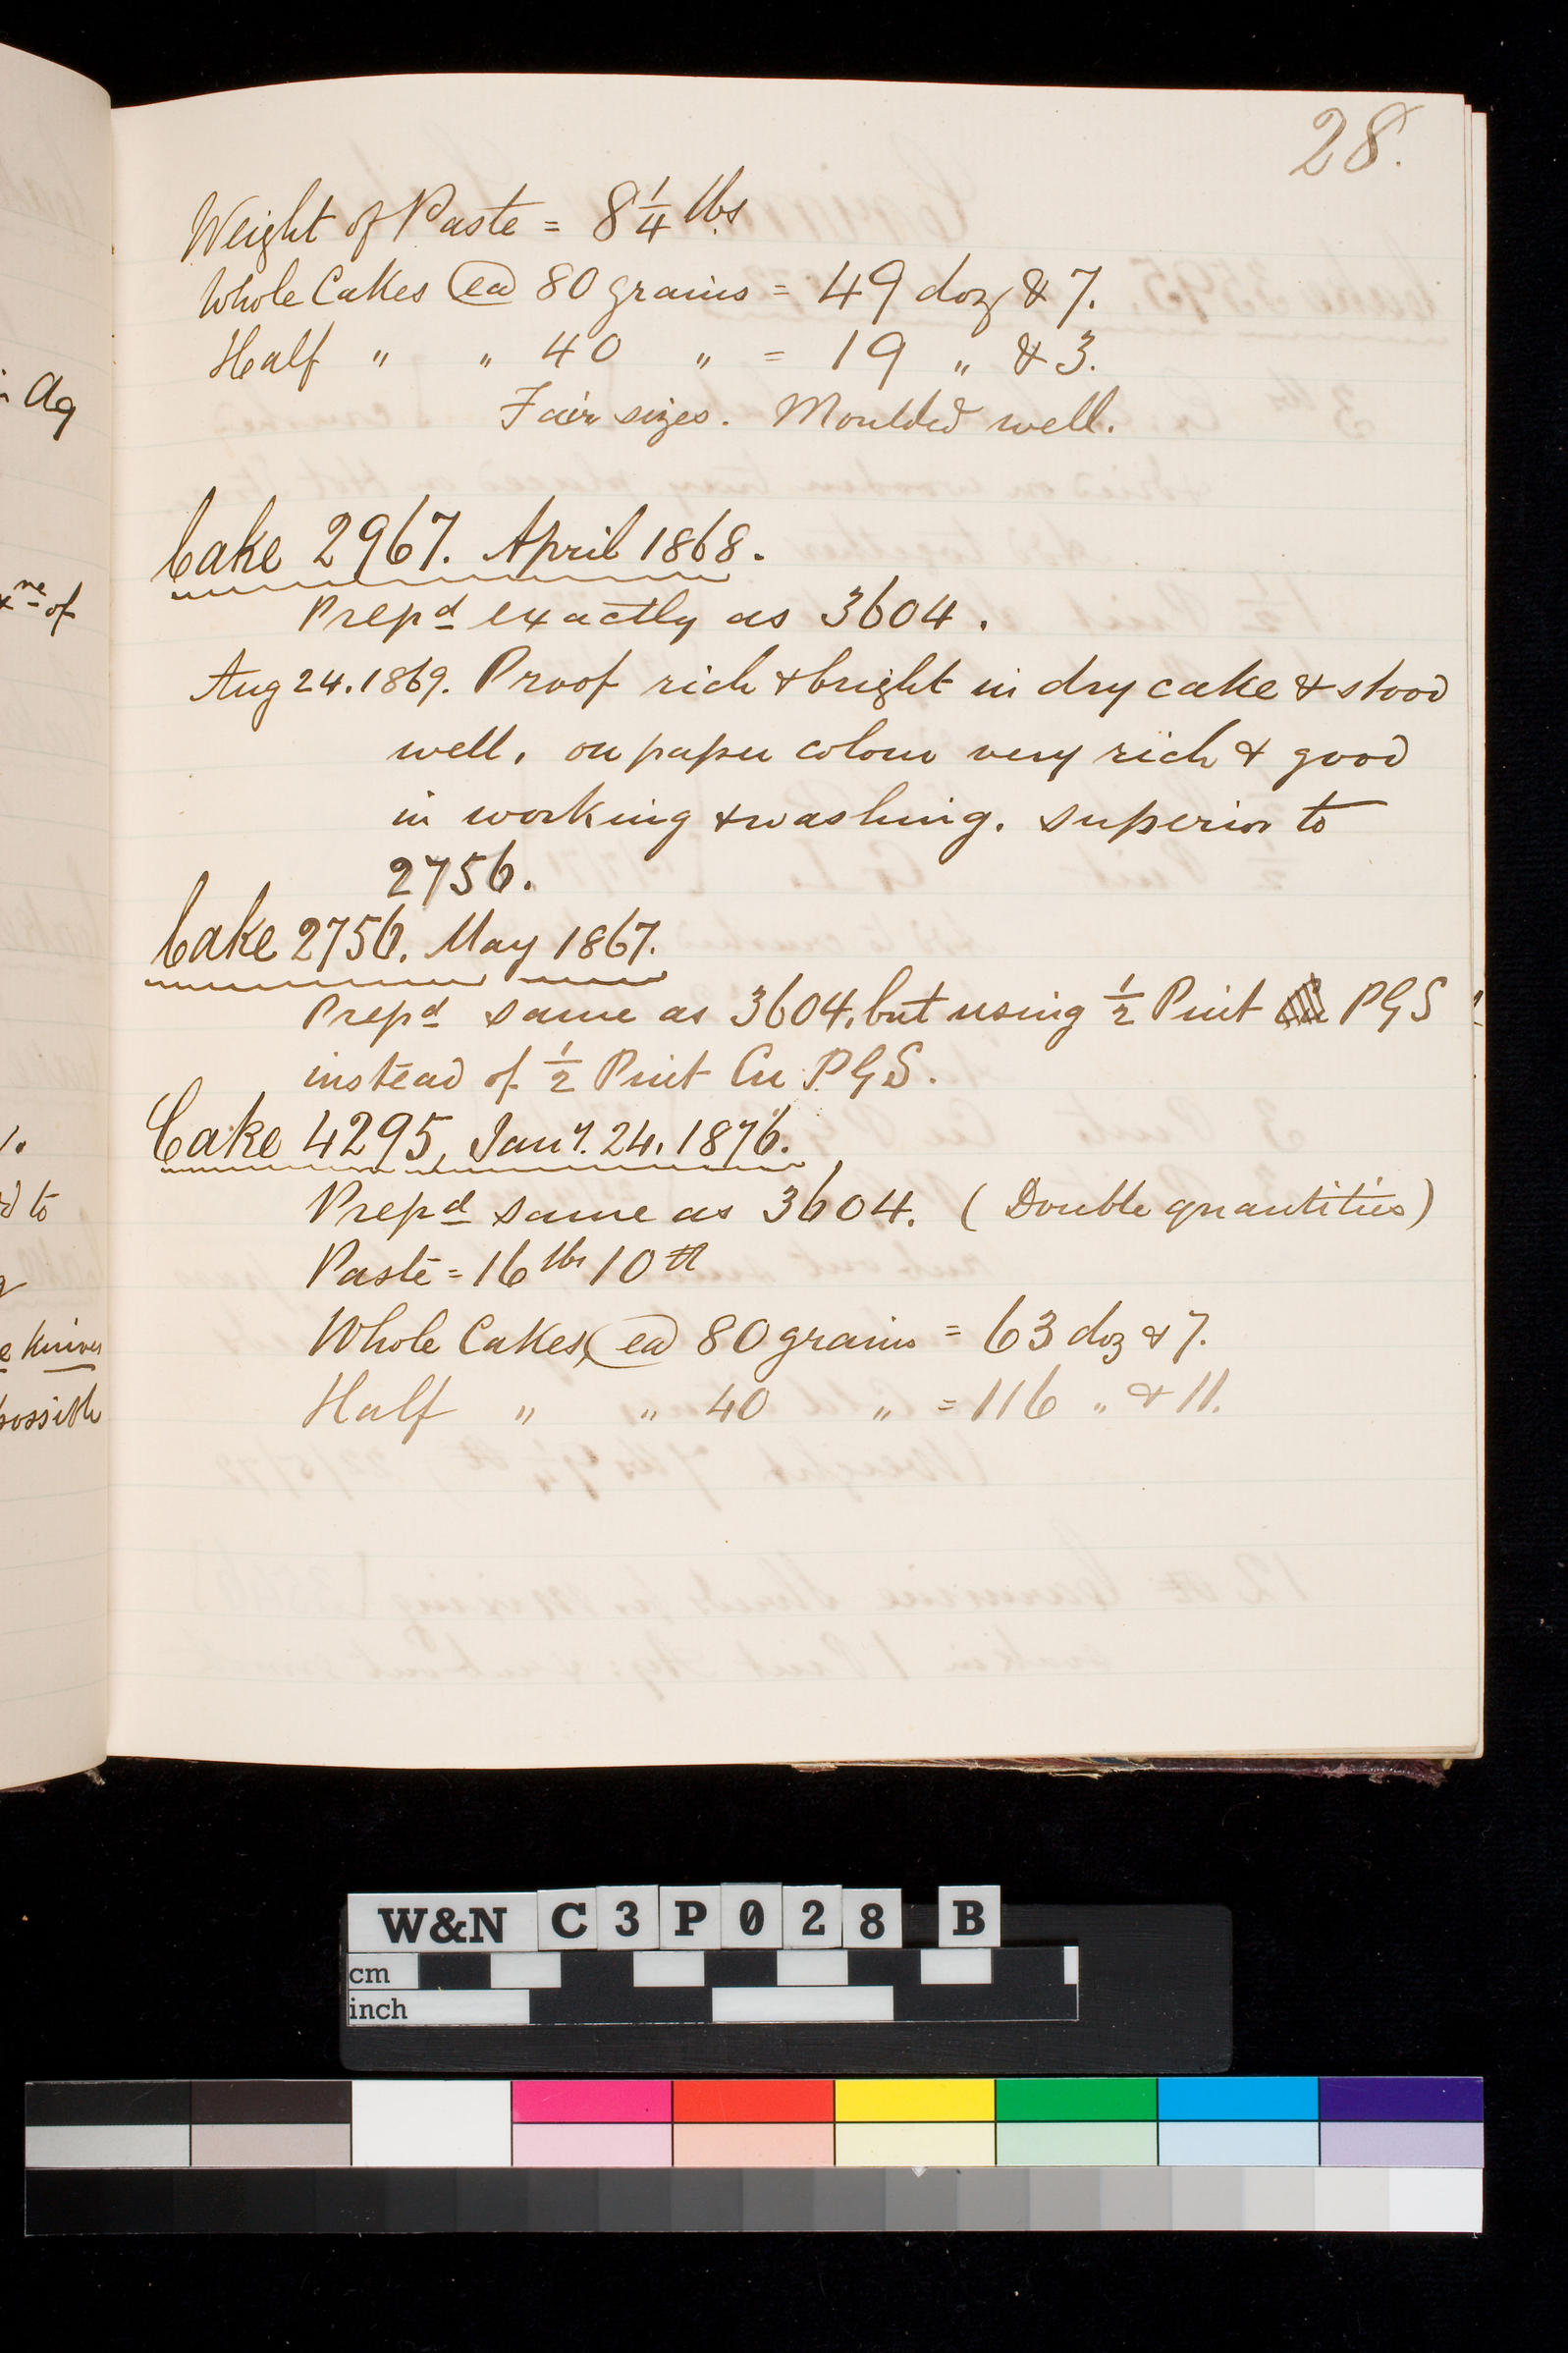 28.
Weight of Paste = 8 1/4 lbs
Whole Cakes ea 80 grains = 49 doz & 7.
Half " " 40 " = 19 " & 3.
Fair sizes. Moulded well.
Cake 2967. April 1868.
Prepd exactly as 3604.
Aug 24. 1869. Proof rich & bright in dry cake & stood
well, on paper colour very rich & good
in working & washing. superior to
2756.
Cake 2756. May 1867.
Prepd same as 3604, but using 1/2 Pint PGS
instead of 1/2 Pint Cu PGS.
Cake 4295, Jany. 24. 1876.
Prepd same as 3604. (Double quantities)
Paste = 16 lbs 10
Whole Cakes, ea 80 grains = 63 doz & 7.
Half " " 40 " = 116 " & 11.
Aq
ne of
d to
knives
possible
W&N C3P028 B
cm
inch